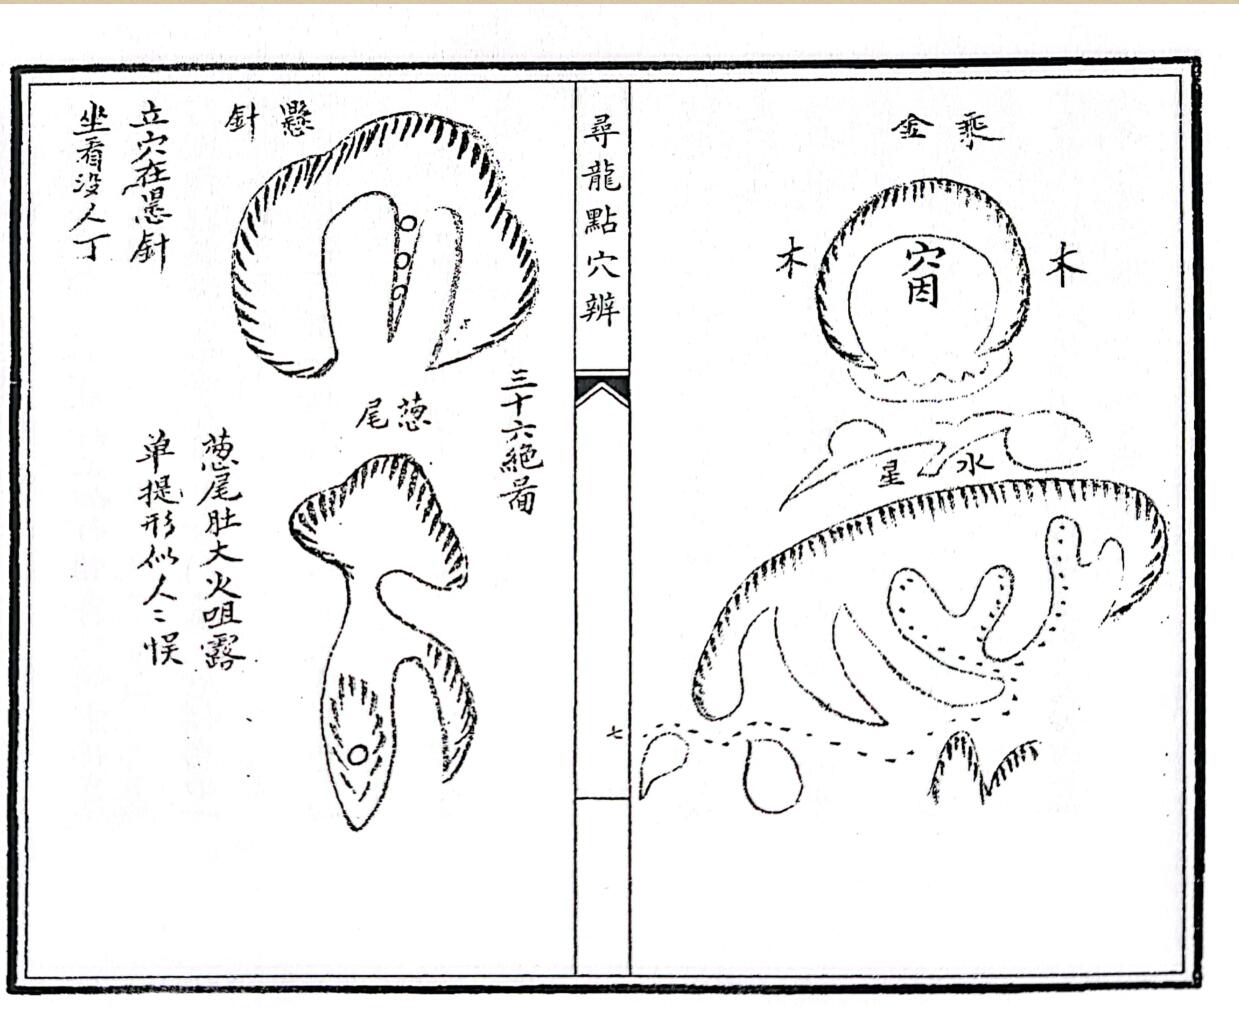 乘金
木
穴因
木
水星
尋龍點穴辨
七
三十六絕啚
懸針
立穴在悬針
坐看没人丁
葱尾
葱尾肚大火咀露
单提形似人〻悮